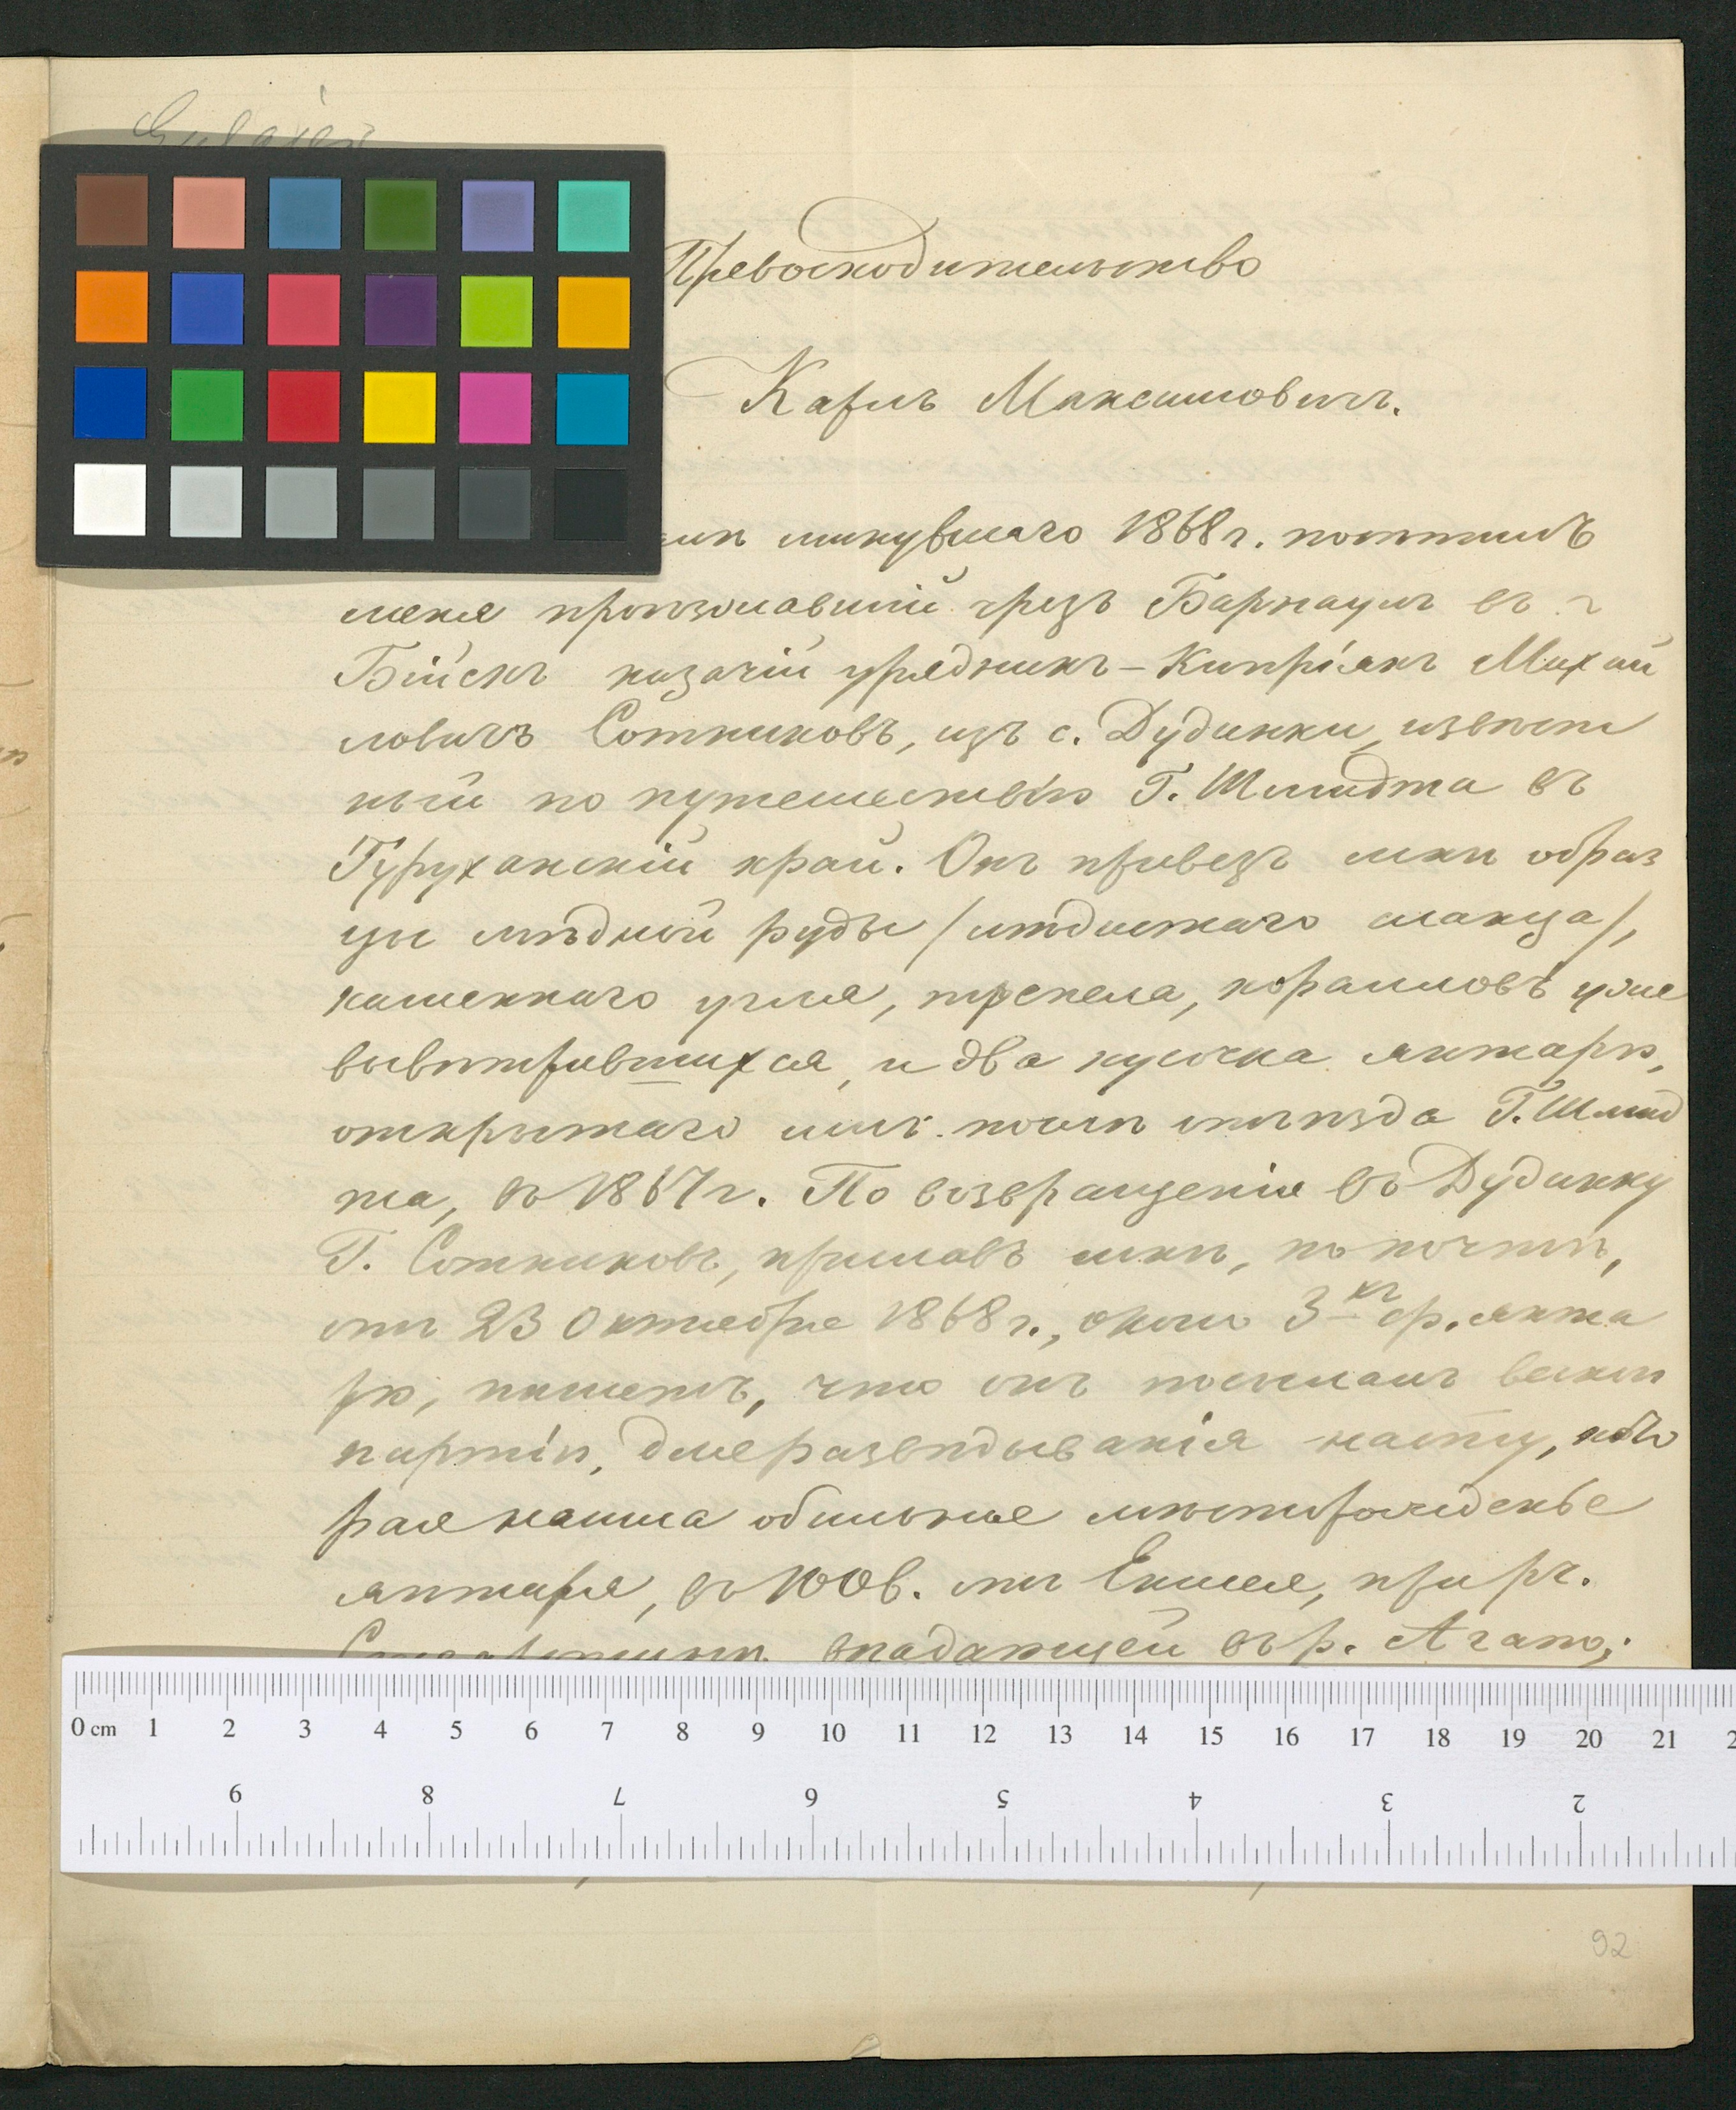 Превосходительство
Карлъ Максимовичъ.
минувшаго 1868 г. посѣтилъ
меня проѣзжавшій чрезъ Барнаулъ въ г
Бійскъ казачій урядникъ - Кипріянъ Михай
ловичъ Сотниковъ, изъ с. Дудинки, извѣст
ный по путешествію Г. Шмидта въ
Туруханскій край. Онъ привезъ мнѣ образ
цы мѣдной руды /мѣдистаго сланца/,
каменнаго угля, трепела, кораловъ уже
вывѣтрившихся, и два кусочка янтарю,
открытаго имъ послѣ отъѣзда Г. Шмид
та, въ 1867 г. По возвращеніи въ Дудинку
Г. Сотниковъ, приславъ мнѣ, по почтѣ,
отъ 23 Октября 1868 г., около 3 хъ ф. янта
рю, пишетъ, что онъ посылалъ весною
партію, для развѣдыванія на сту, кото
рая нашла обильное мѣсторожденье
янтаря, въ 100 в. отъ Енисея, при рч.
впадающей въ р. Агапо;
92
0 cm 1 2 3 4 5 6 7 8 9 10 11 12 13 14 15 16 17 18 19 20 21 2
9 8 7 6 5 4 3 2